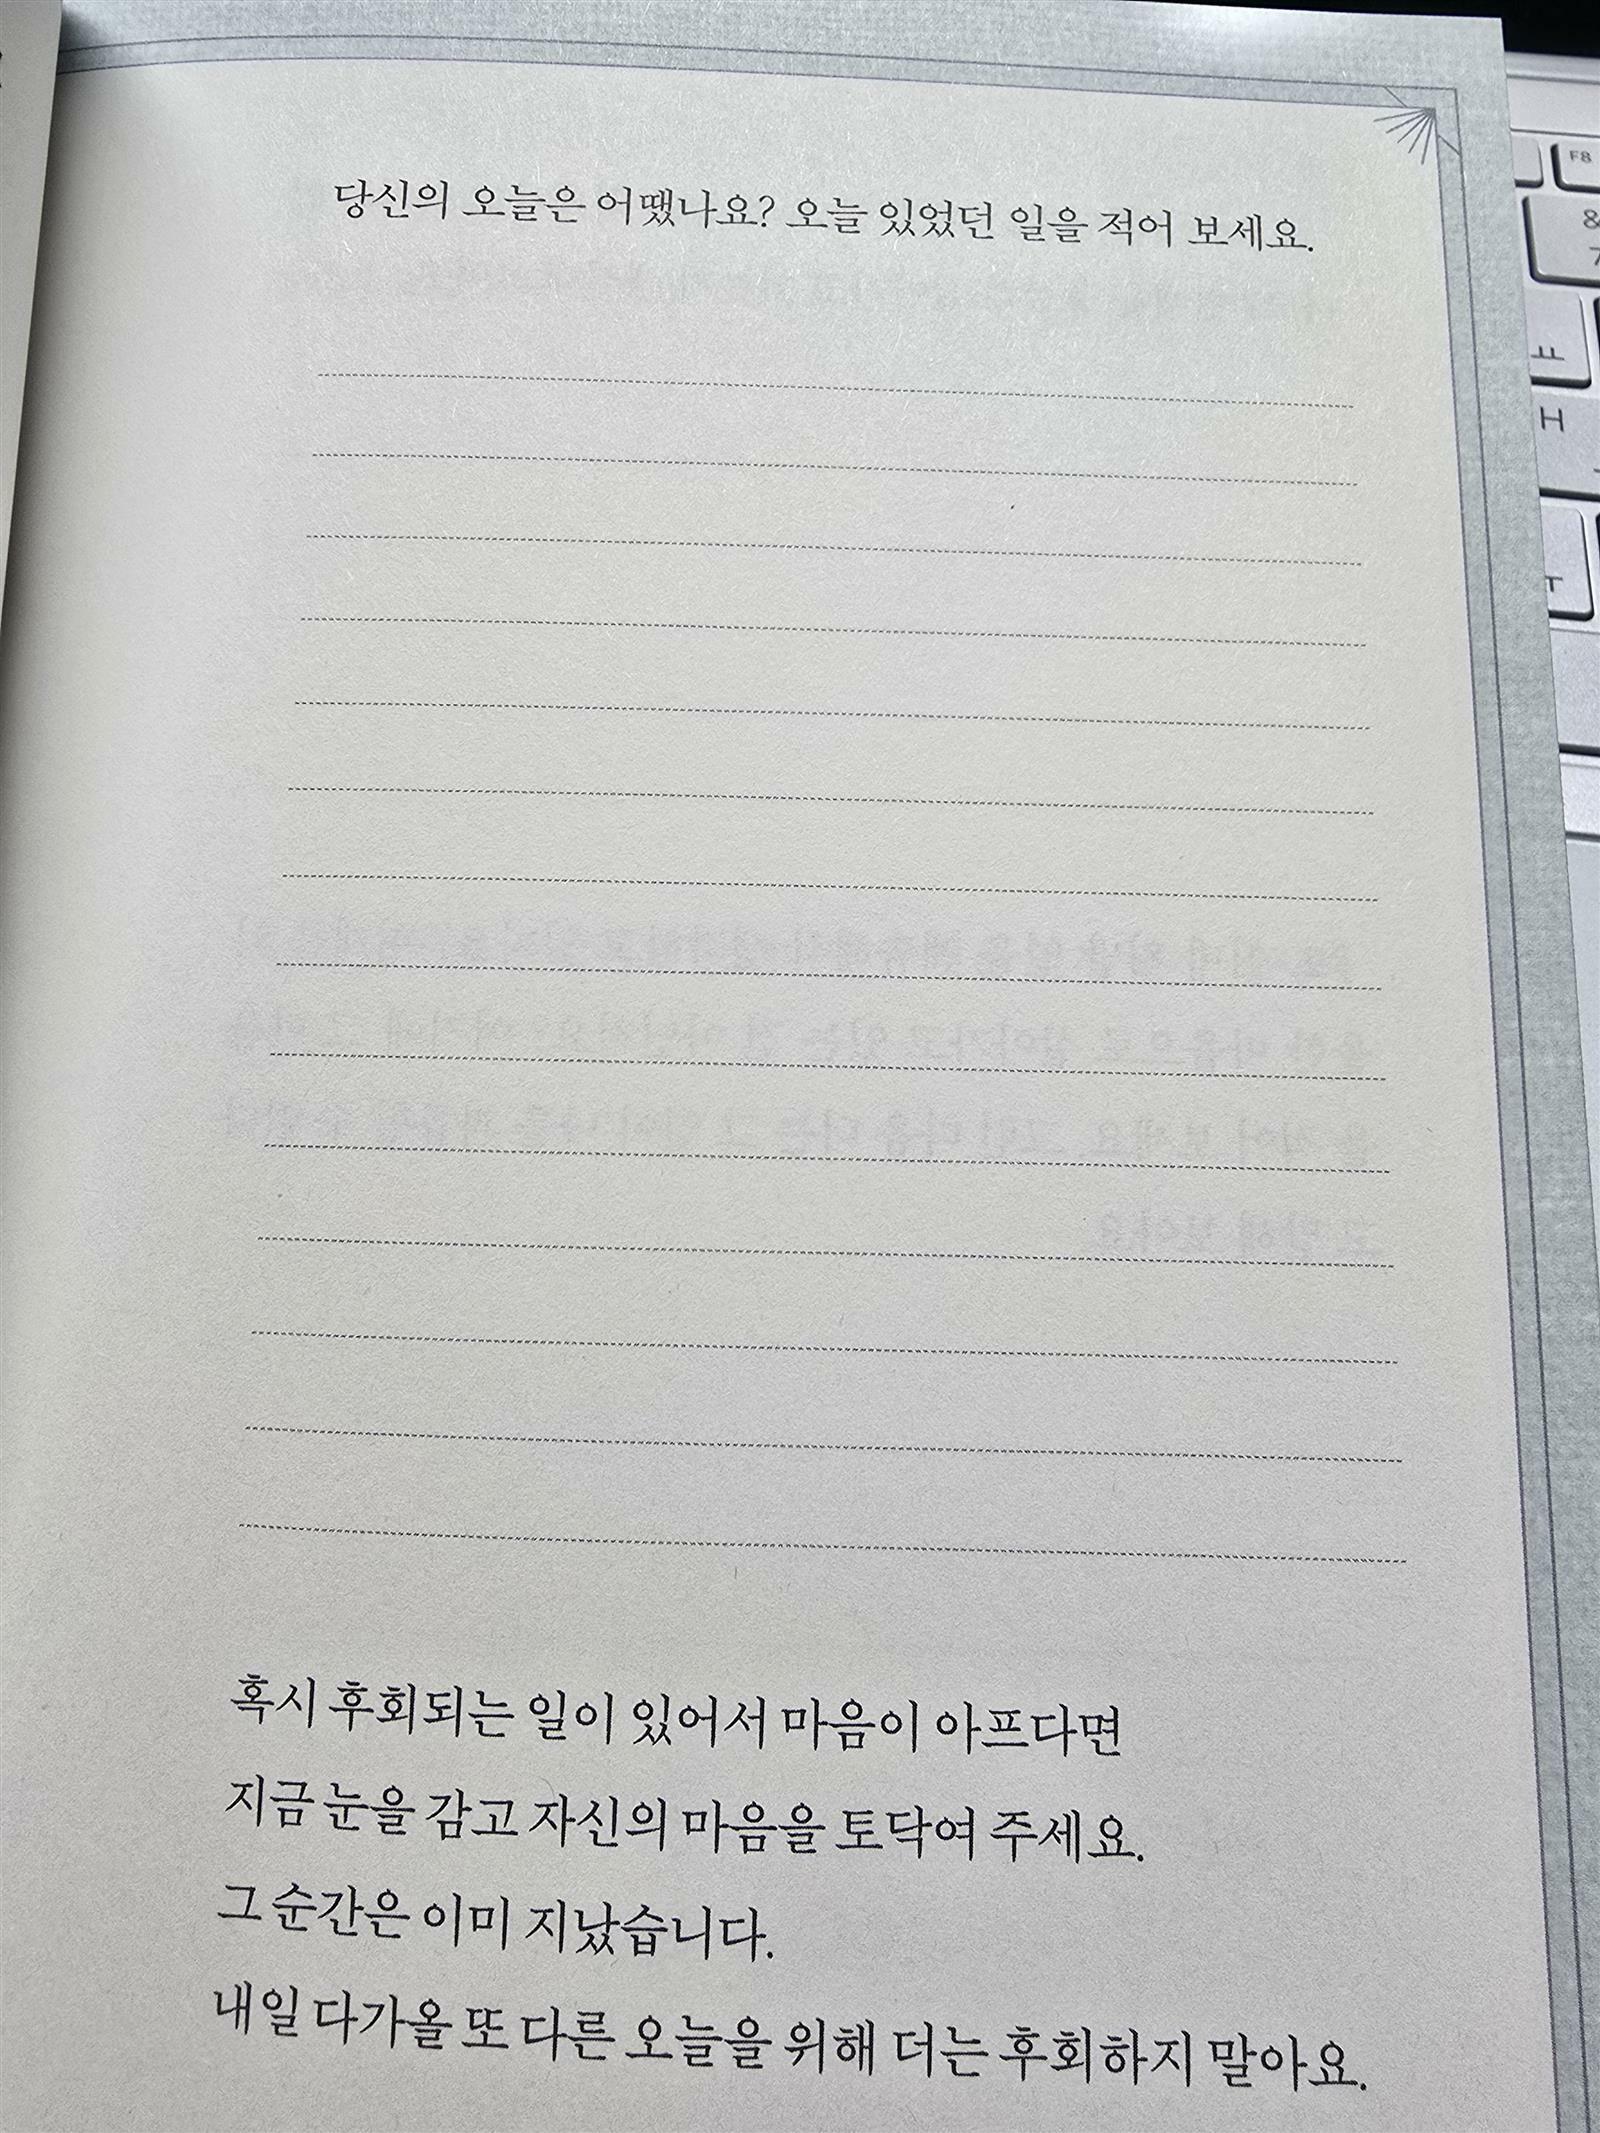 당신의 오늘은 어땠나요? 오늘 있었던 일을 적어 보세요.
혹시 후회되는 일이 있어서 마음이 아프다면
지금 눈을 감고 자신의 마음을 토닥여 주세요.
그 순간은 이미 지났습니다.
내일 다가올 또 다른 오늘을 위해 더는 후회하지 말아요.
F8
&
7
ㅛ
H
ㅜ